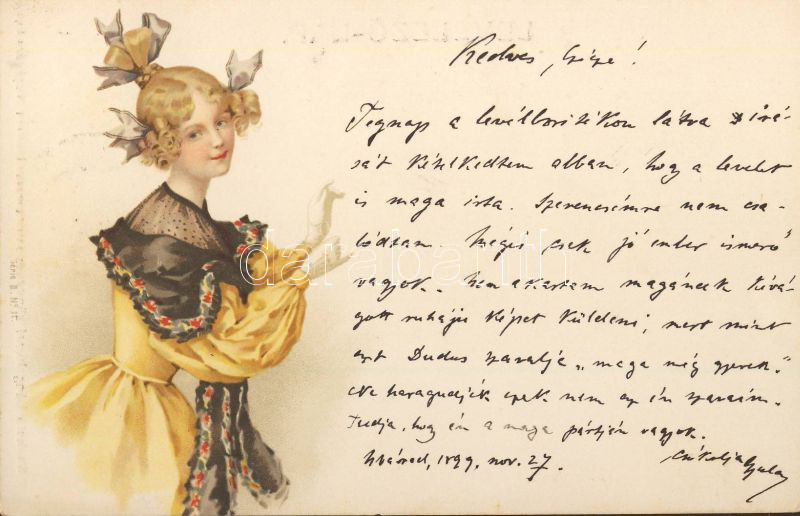 Kedves Czipe!
Tegnap a levélborítékon látva irá-
sát kételkedtem abban, hogy a levelet
is maga irta. Szerencsémre nem csa-
lódtam. Mégis csak jó ember ismerő
vagyok. Nem akartam magának kivá-
gott ruháju képet küldeni, mert mint
azt Dudus szavalja „maga még gyerek."
Ne haragudjék ezek nem az én szavaim.
Tudja, hogy én a maga pártján vagyok.
1899. nov. 27.
Gyula
darabanth
Serie